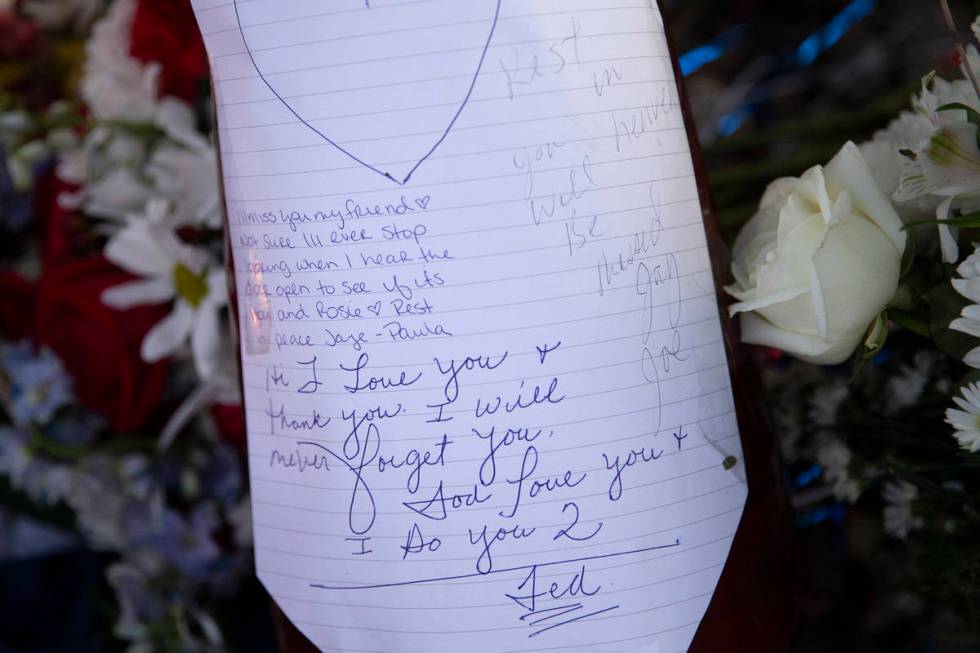 Rest
in
heaven
you
will
Be
Missed
Jay
Joe
miss you my friend♡
Not sure Ill ever stop
looking when I hear the
door open to see if its
you and Rosie♡ Rest
in peace Jaye - Paula
I Love you +
thank you. I will
never forget you.
God love you +
I do you 2
Ted